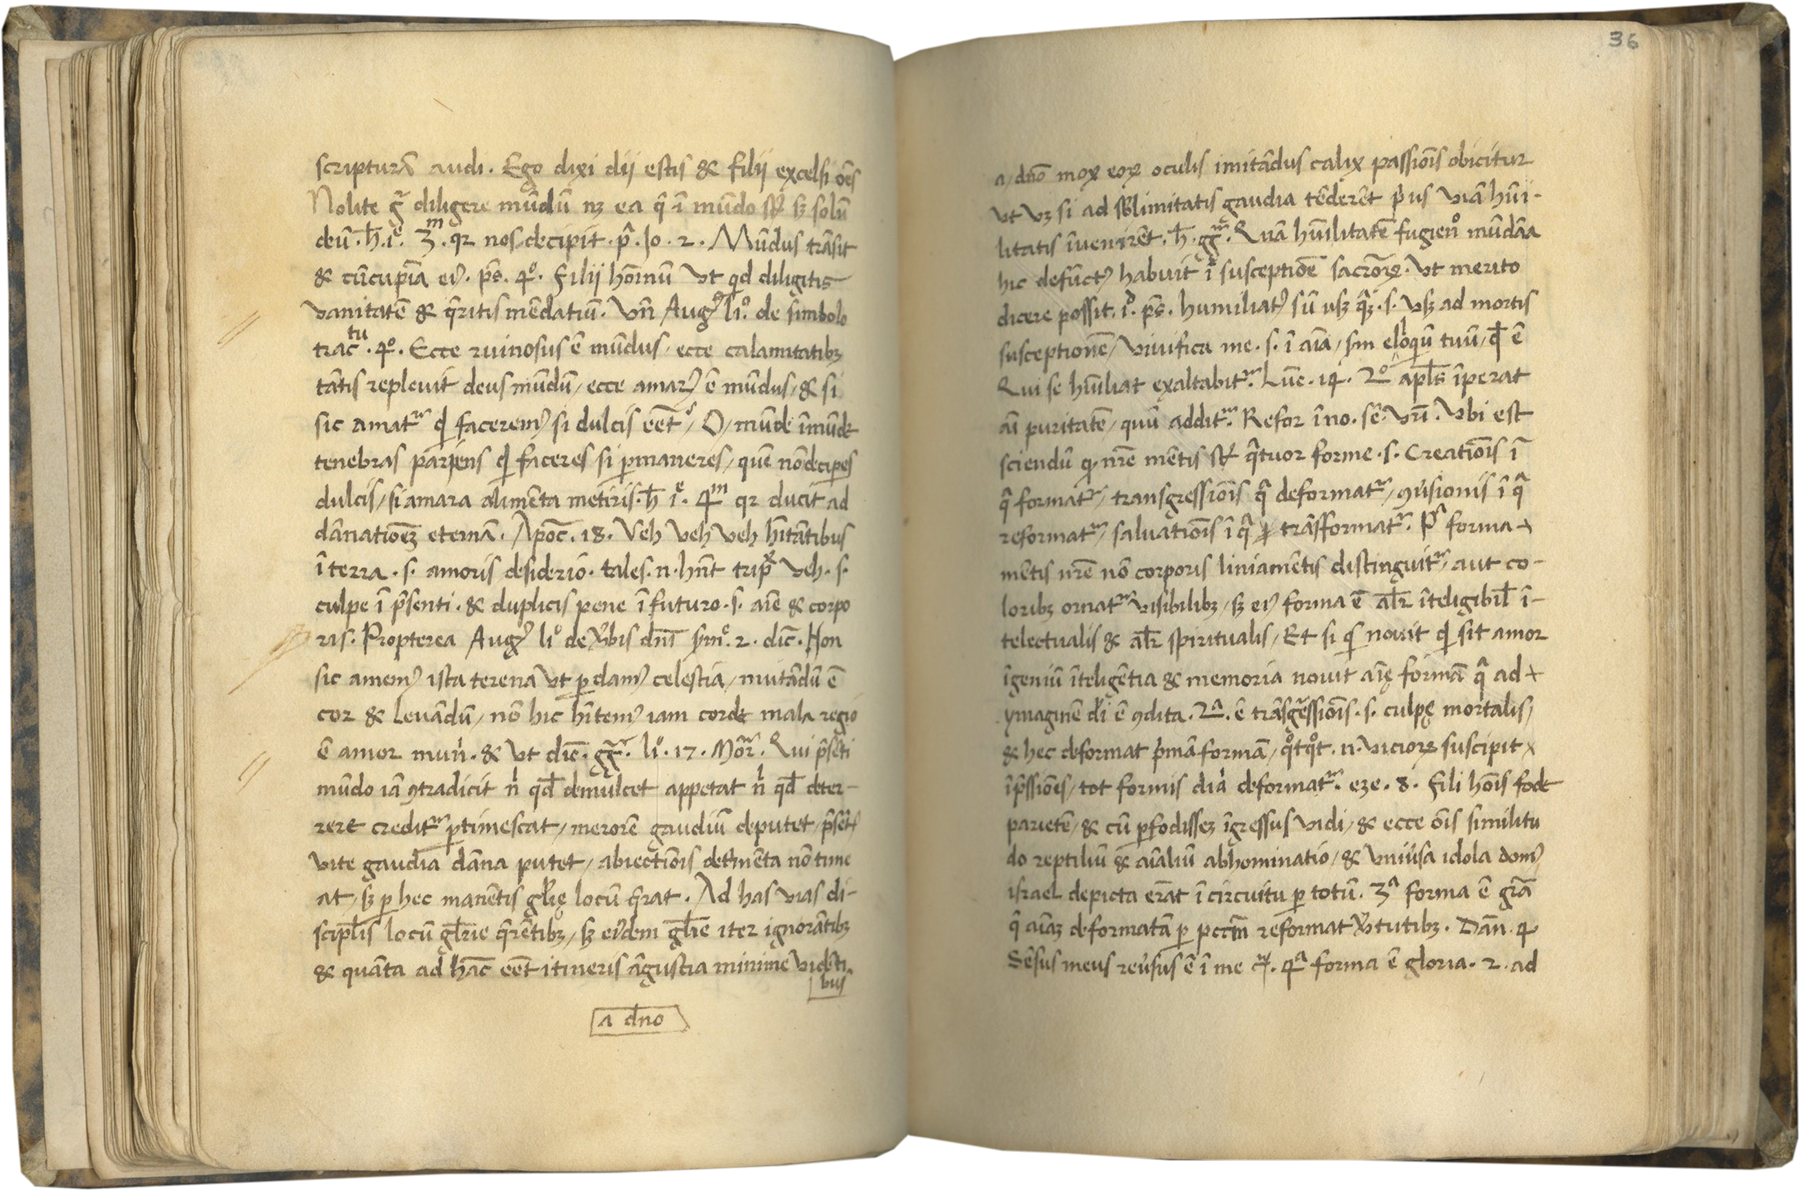 scripturā audi. Ego dixi dii estis & filij excelsi oēs
Nolite g̃ diligere mūdū nȝ ea q̄ ī mūdo st̄ sȝ solū
deū. h̄. iᵉ. 3ᵐ. qr nos decipit. pᵃ. Io. 2. Mūdus trāsit
& cūcupīa eiꝰ. ps̄. 4º. Filij hoīnū vt qd diligitis
vanitatē & q̄ritis mēdatiū. Vñ Augꝰ liº. de simbolo
tracᵗᵘ. 4º. Ecce ruinosus ē mūdus / ecce calamitatibȝ
tātis repleuit deus mūdū / ecce amarꝰ ē mūdus / & si
sic amatʳ qd faceremꝰ si dulcis eēt / O / mūde īmūde
tenebras pariens qd faceres si ꝑmaneres / quē nō decipes
dulcis / si amara alimēta metiris. h̄ iᵉ. 4ᵐ qr ducit ad
dānationeȝ eternā. Apoc̄. 18. Veh veh veh hītātibus
ī terra. s. amoris desiderio. tales. n. hn̄t tripˣ veh. s.
culpe ī p̄senti. & duplicis pene ī futuro. s. aīe & corpo
ras. Propterea Augꝰ liº de v̄bis dn̄i sṃº. 2. dic̄. Non
sic amemꝰ ista terena vt ꝑdamꝰ celestia / mutādū ē
cor & leuādū / nō hic hītemꝰ iam corde mala regio
ē amor mun̄. & vt dic̄. gg̃ʳ. liº. 17. Moʳ. Qui p̄sēti
mūdo iā ꝯtradicit n̄ qd̄ demulcet appetat n̄ qd̄ deter-
reret creditʳ ꝑtimescat / merorē gaudiū deputet / p̄sēt
vite gaudia dāna putet / abiectiōis detrimēta nō time
at / sȝ ꝑ hec manētis gl̄ię locū q̄rat. Ad has vias di-
scipl̄is locū gl̄rie q̄rētibȝ / sȝ eiꝰdem gl̄rie iter ignorātibȝ
& quāta ad hāc eēt itineris āgustia minime vidēti
bus
a dn̄o
36
a / dn̄o mox eoꝝ oculis imitādus calix passiōis obicitur
vt vȝ si ad sb̄limitatis gaudia tēderēt pⁱus viā hūi-
litatis īuenirēt. h̄. gg̃ʳ. Quā hūilitatē fugienº mūdāa
hic defūctꝰ habuit ī susceptiōe sacroꝝ. vt merito
dicere possit. iº. ps̄. humiliatꝰ sū vsȝ q̄ȝ. s. vsȝ ad mortis
susceptionē / viuifica me. s. ī aīa / sm̄ eloquiū tuū / qd̄ ē
Qui se hūiliat exaltabitʳ. Luē. 14. 2º apl̄s īperat
aī puritatē / quū additʳ. Refor īno. sē. vrī. Vbi est
sciendū q. nrē mētis st̄ q̄tuor forme. s. Creatiōis ī
q̄ formatʳ / transgressiōis q̄ deformatʳ / ꝯūsionis ī q̄
reformatʳ / saluatiōis ī q̄ trāsformatʳ. Pᵃ forma
mētis nrē nō corporis liniamētis distinguitʳ / aut co-
loribȝ ornatʳ visibilibȝ / sȝ eiꝰ forma ē al̄r īteligibil̄ ī-
telectualis & al̄r spiritualis / Et si qs nouit qd sit amor
īgeniū īteligētia & memoria nouit aīę formā q̄ ad
ymaginē dei ē ꝯdita. 2ᵃ. ē trāsgressiōis. s. culpę mortalis /
& hec deformat pⁱmā formā / qºtqºt. n. vicioꝝ suscipit
īp̄ssiōes / tot formis diā deformatʳ. eze. 8. fili hoīs fode
parietē / & cū ꝑfodisseȝ īgressus vidi / & ecce oīs similitu
do reptiliū & aīaliū abhominatio / & vniūsa idola domꝰ
israel depicta erāt ī circuitu ꝑ totū. 3ᵃ forma ē grā
q̄ aīaȝ deformatā ꝑ pcc̄m reformat v̄tutibȝ. Dān. 4
Sēsus meus reūsus ē ī me. 4ᵃ forma ē gloria. 2. ad